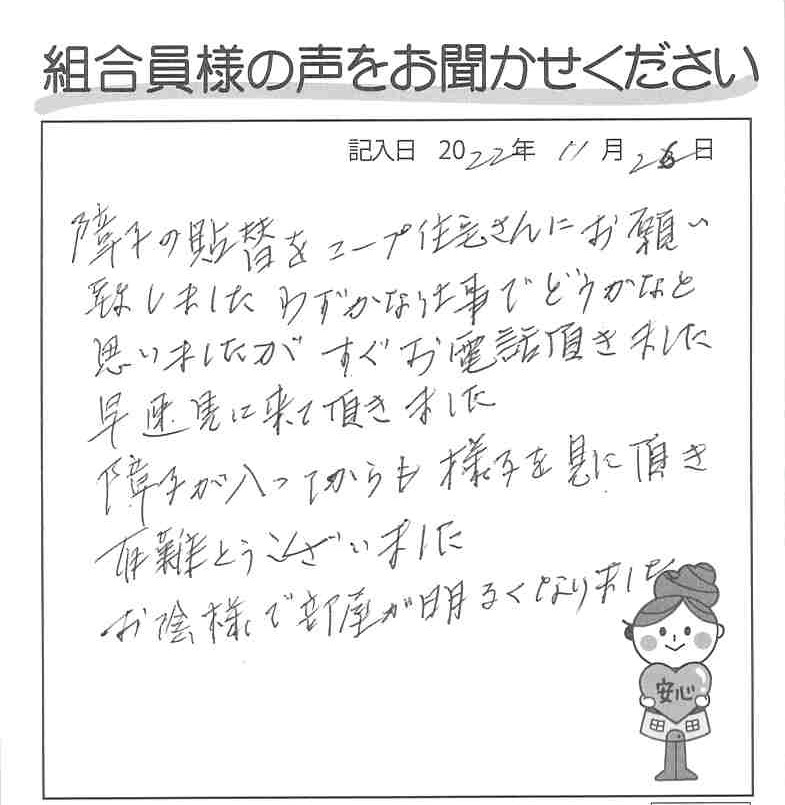 組合員様の声をお聞かせください
記入日 2022年 11月 26日
障子の貼替をコープ住宅さんにお願い
致しました わずかな仕事でどうかなと
思いましたが すぐお電話頂きました
早速見に来て頂きました
障子が入ってからも 様子を見に頂き
有難とうございました
お陰様で部屋が明るくなりました
安心